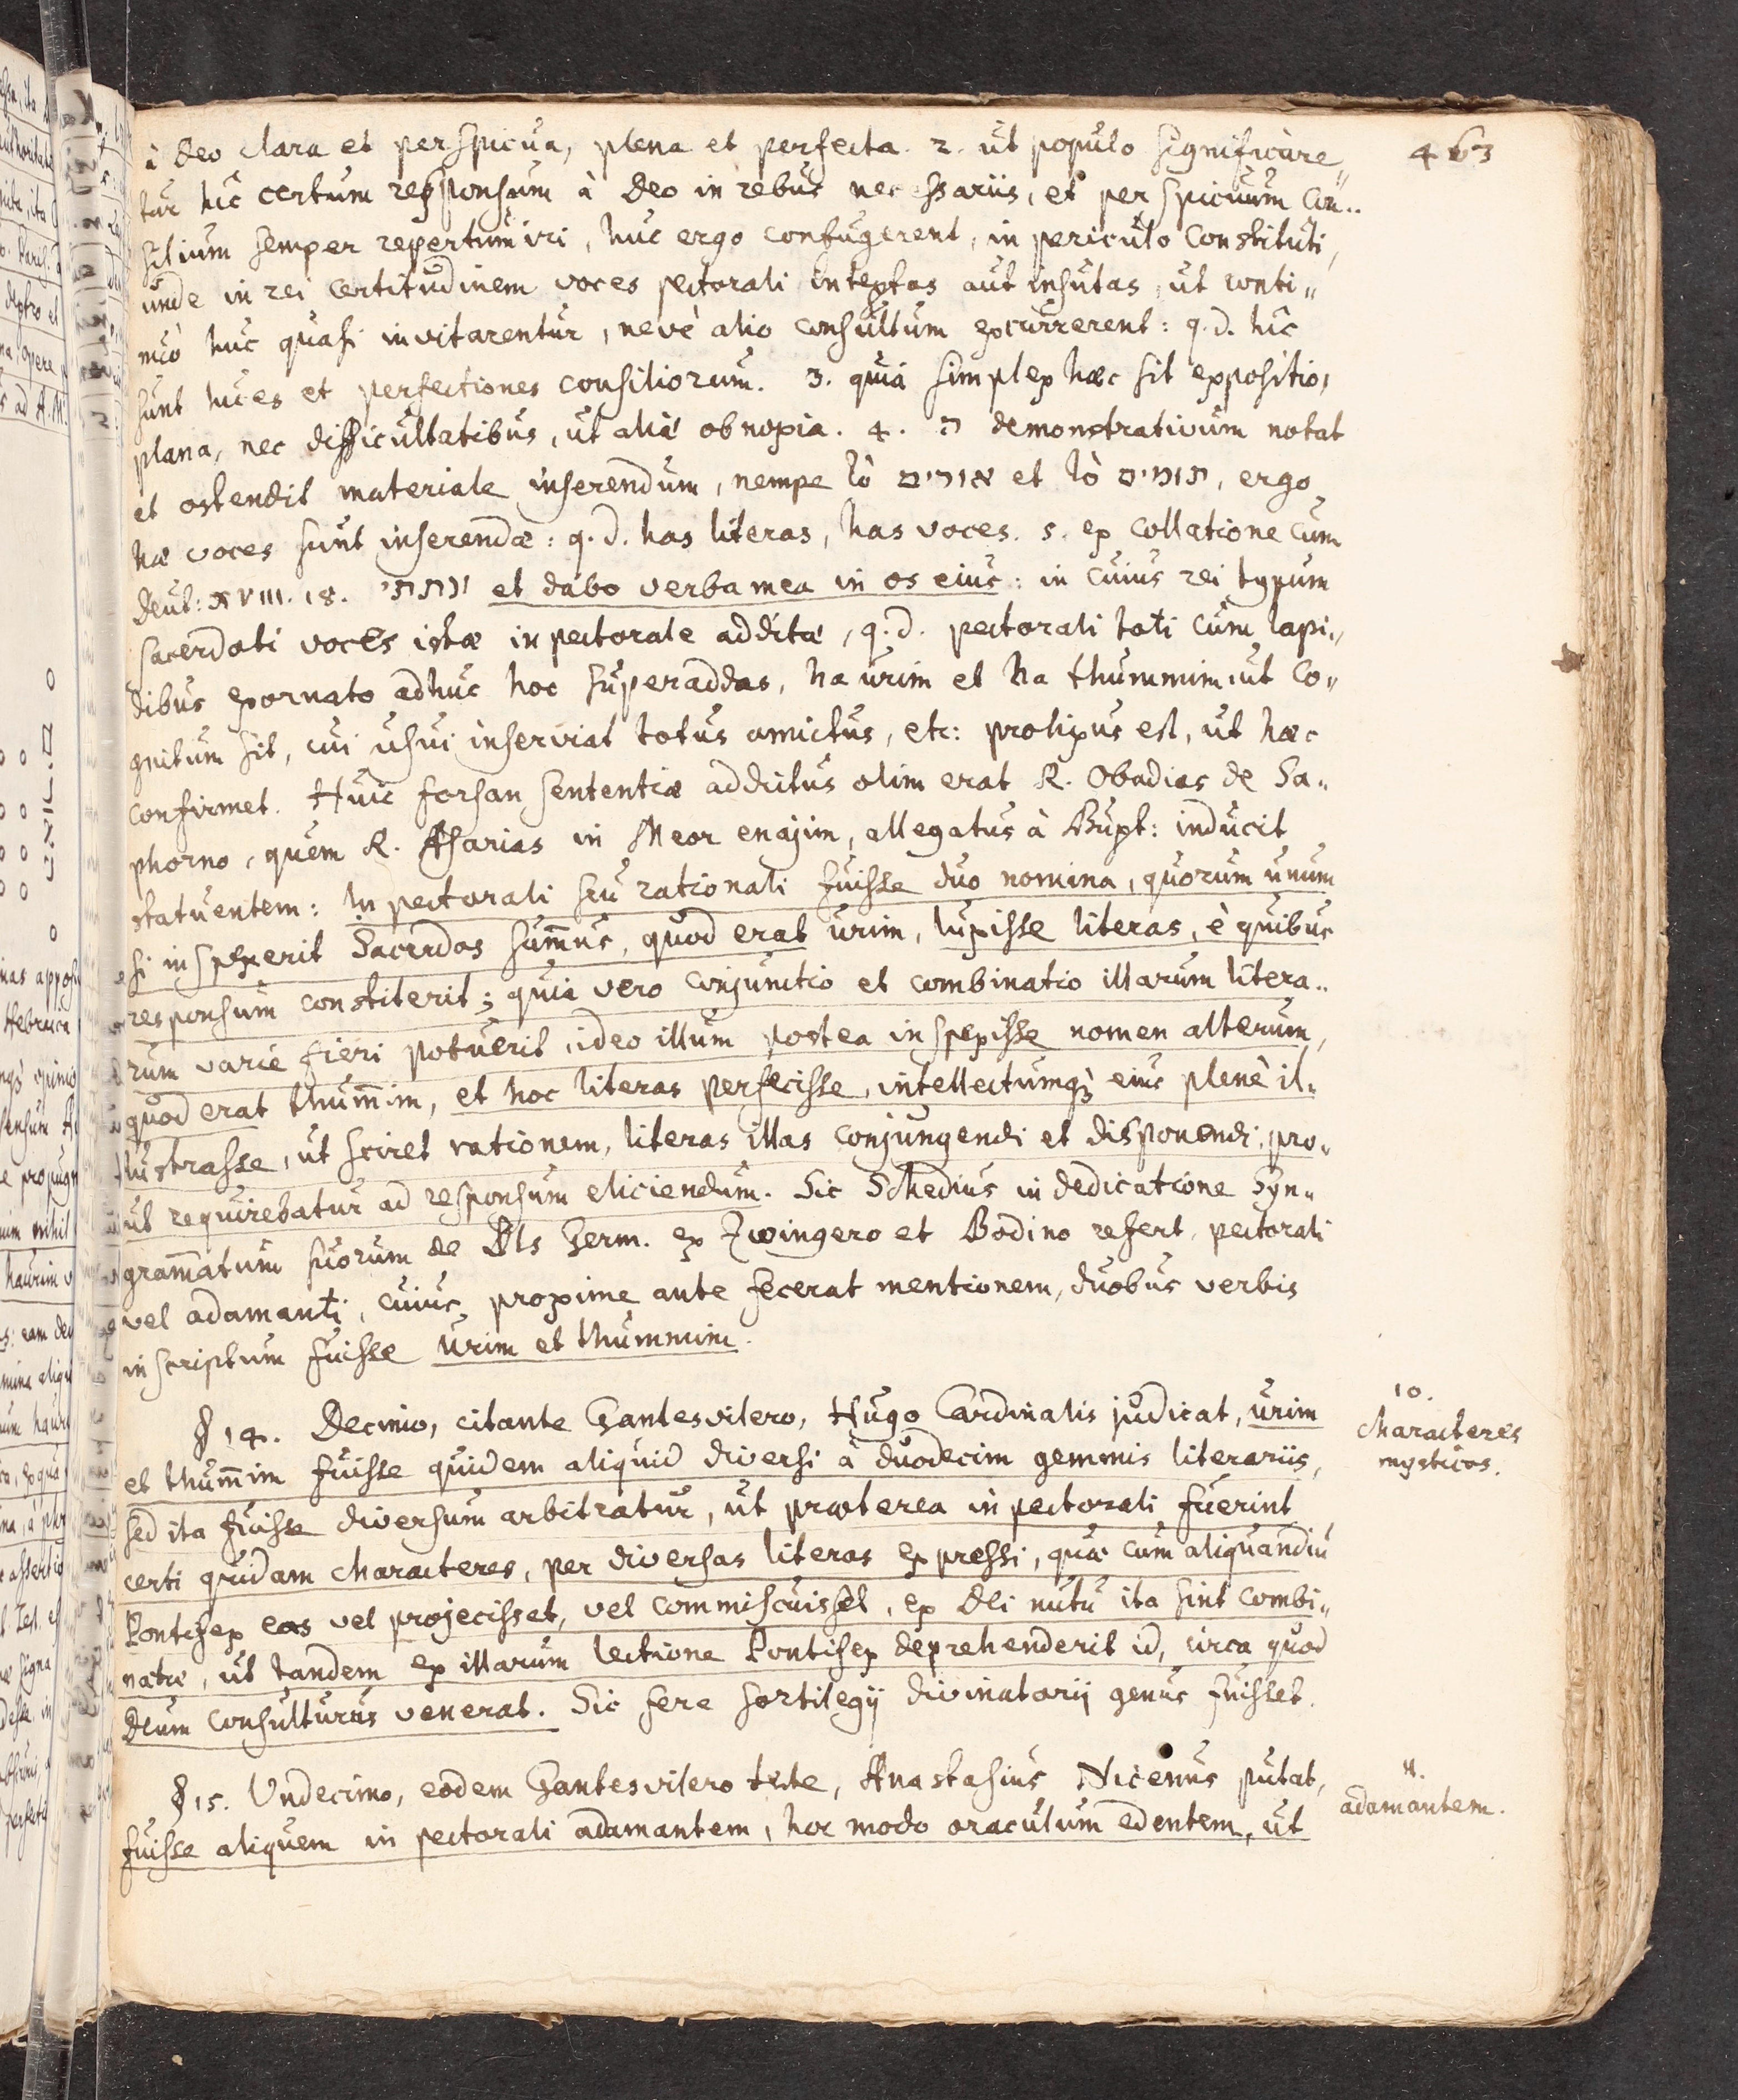 463
à Deo clara et perspicua, plena et perfecta. 2. ut populo significare„
tur hîc certum responsum à Deo in rebus necessariis, et perspicuum con„
silium semper repertum iri, huc ergo confugerent, in periculo constituti,
unde in rei certitudinem voces pectorali intextas aut insutas, ut conti„
nuò huc quasi invitarentur, nevè alio consultum excurrerent: q. d. hîc
sunt luces et perfectiones consiliorum. 3. quia simplex hæc sit expositio,
plana, nec difficultatibus, ut aliæ obnoxia. 4. ה demonstrativum notat
et ostendit materiale inserendum, nempe tò אורים et tò תומים, ergo
hæ voces sunt inserendæ: q. d. has literas, has voces. 5. ex collatione cum
Deut: XVIII. 18. ונתתי et dabo verba mea in os eius: in cuius rei typum
sacerdoti voces istæ in pectorale additæ, q. d. pectorali toti cum lapi„
dibus exornato adhuc hoc superaddas, ha urim et ha thummim, ut co„
gnitum sit, cui usui inserviat totus amictus, etc: prolixus est, ut hæc
confirmet. Huic forsan sententiæ addictus olim erat R. Obadias de Sa„
phorno, quem R. Asarias in Meor enajim, allegatus à Buxt: inducit
statuentem: In pectorali seu rationali fuisse duo nomina, quorum unum
si inspexerit Sacerdos sum̄us, quod erat urim, luxisse literas, è quibus
responsum constiterit; quia vero conjunctio et combinatio illarum litera„
rum varie fieri potuerit, ideo illum postea inspexisse nomen alterum,
quod erat thum̄im, et hoc literas perfecisse, intellectumq; eius plenè il„
lustrasse, ut sciret rationem, literas illas conjungendi et disponendi, pro„
ut requirebatur ad responsum eliciendum. Sic Schedius in dedicatione Syn„
gram̄atum suorum de Dis Germ. ex Zwingero et Bodino refert, pectorali
vel adamanti, cuius proxime ante fecerat mentionem, duobus verbis
inscriptum fuisse Urim et thummim.
§ 14. Decimo, citante Gantesvilero, Hugo Cardinalis judicat, urim
et thum̄im fuisse quidem aliquid diversi à duodecim gemmis literariis,
sed ita fuisse diversum arbitratur, ut præterea in pectorali fuerint
certi quidam characteres, per diversas literas expressi, quæ cum aliquandiu
Pontifex eas vel projecisset, vel commiscuisset, ex Dei nutu ita sint combi„
natæ, ut tandem ex illarum lectione Pontifex deprehenderit id, circa quod
Deum consulturus venerat. Sic fere sortilegij divinatorij genus fuisset.
10.
characteres
mysticos.
§ 15. Undecimo, eodem Gantesvilero teste, Anastasius Nicenus putat,
fuisse aliquem in pectorali adamantem, hoc modo oraculum edentem, ut
11.
adamantem.